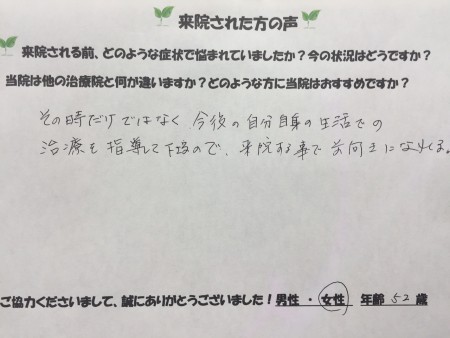 来院された方の声
来院される前、どのような症状で悩まれていましたか?今の状況はどうですか?
当院は他の治療院と何が違いますか?どのような方に当院はおすすめですか?
その時だけではなく今後の自分自身の生活での
治療も指導して下さるので、来院する事で前向きになれる。
ご協力くださいまして、誠にありがとうございました!男性 ・ 女性 年齢 52 歳